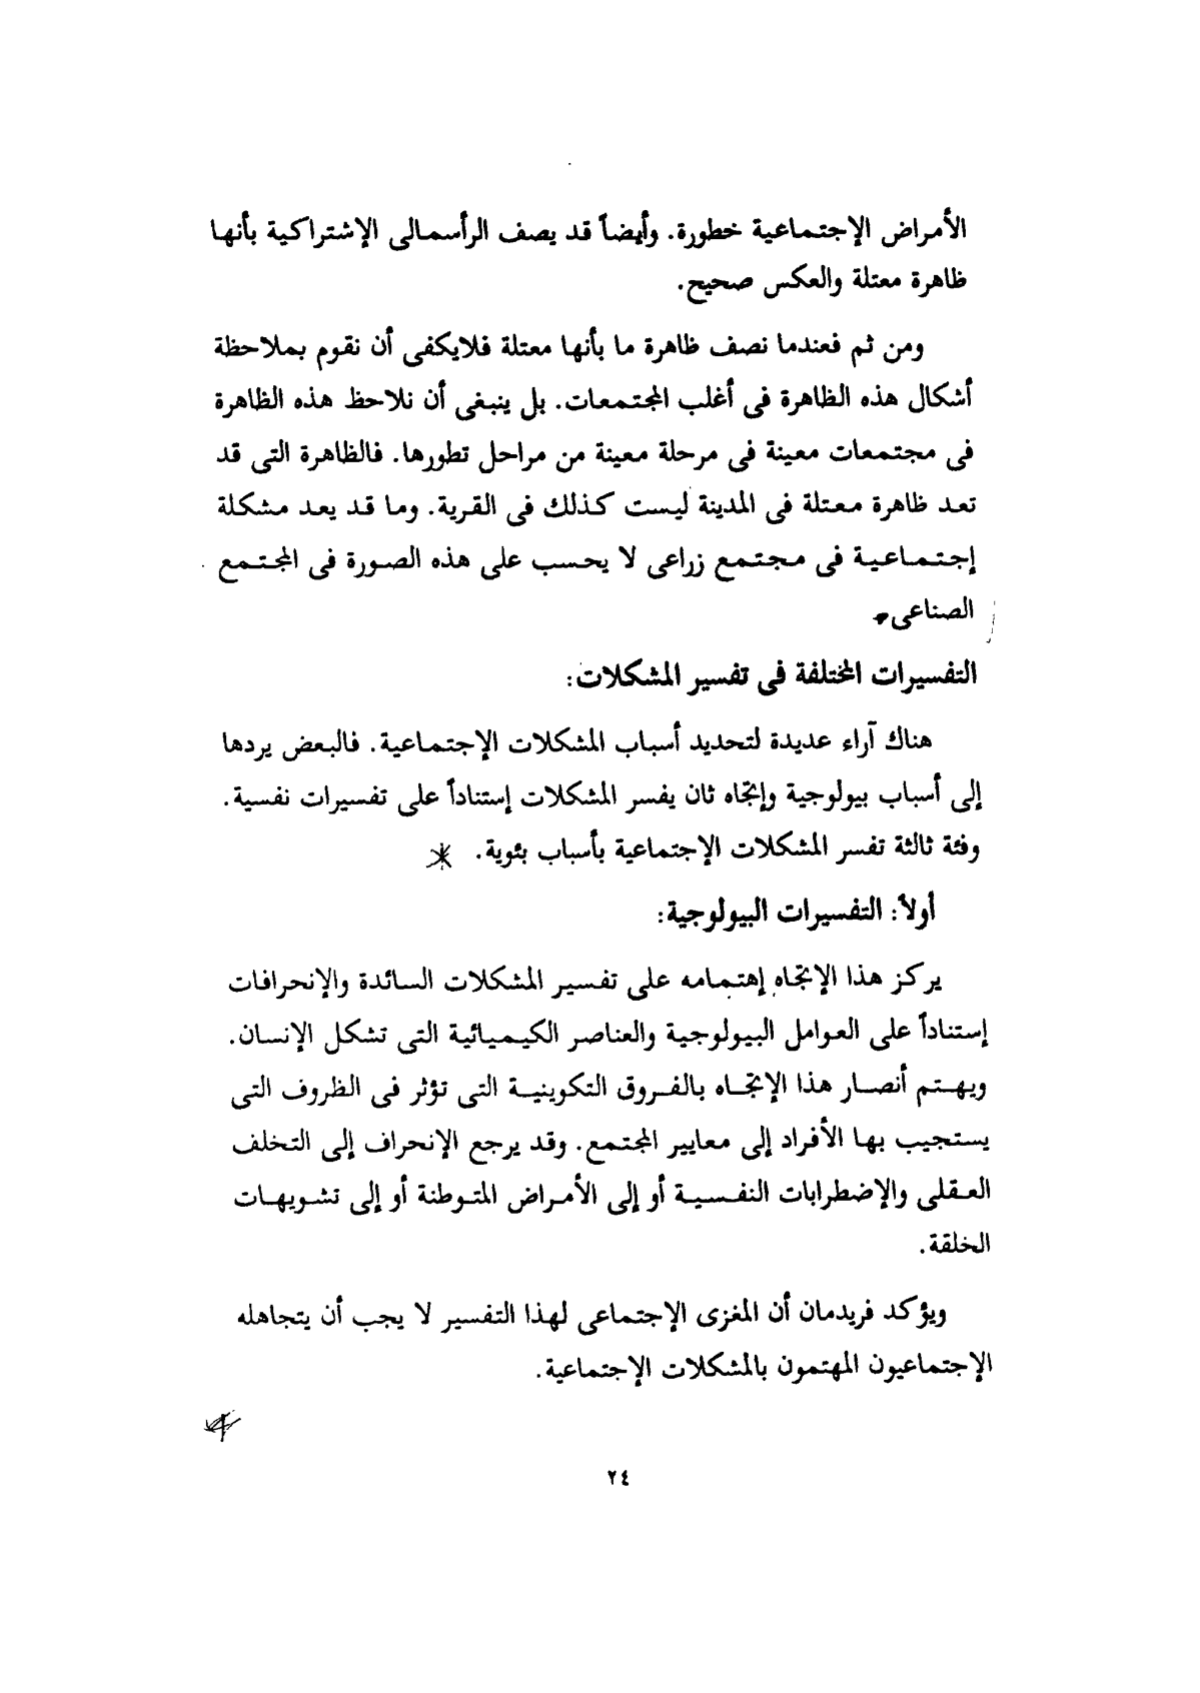 الأمراض الإجتماعية خطورة. وأيضاً قد يصف الرأسمالى الإشتراكية بأنها
ظاهرة معتلة والعكس صحيح.
ومن ثم فعندما نصف ظاهرة ما بأنها معتلة فلايكفى أن نقوم بملاحظة
أشكال هذه الظاهرة فى أغلب المجتمعات. بل ينبغى أن نلاحظ هذه الظاهرة
فى مجتمعات معينة فى مرحلة معينة من مراحل تطورها. فالظاهرة التى قد
تعد ظاهرة معتلة فى المدينة ليست كذلك فى القرية. وما قد يعد مشكلة
إجتماعية فى مجتمع زراعى لا يحسب على هذه الصورة فى المجتمع
الصناعى.
التفسيرات المختلفة فى تفسير المشكلات:
هناك آراء عديدة لتحديد أسباب المشكلات الإجتماعية. فالبعض يردها
إلى أسباب بيولوجية وإتجاه ثان يفسر المشكلات إستناداً على تفسيرات نفسية.
وفئة ثالثة تفسر المشكلات الإجتماعية بأسباب بئوية.
أولاً: التفسيرات البيولوجية:
يركز هذا الإتجاه إهتمامه على تفسير المشكلات السائدة والإنحرافات
إستناداً على العوامل البيولوجية والعناصر الكيميائية التى تشكل الإنسان.
ويهتم أنصار هذا الإتجاه بالفروق التكوينية التى تؤثر فى الظروف التى
يستجيب بها الأفراد إلى معايير المجتمع. وقد يرجع الإنحراف إلى التخلف
العقلى والإضطرابات النفسية أو إلى الأمراض المتوطنة أو إلى تشويهات
الخلقة.
ويؤكد فريدمان أن المغزى الإجتماعى لهذا التفسير لا يجب أن يتجاهله
الإجتماعيون المهتمون بالمشكلات الإجتماعية.
٢٤